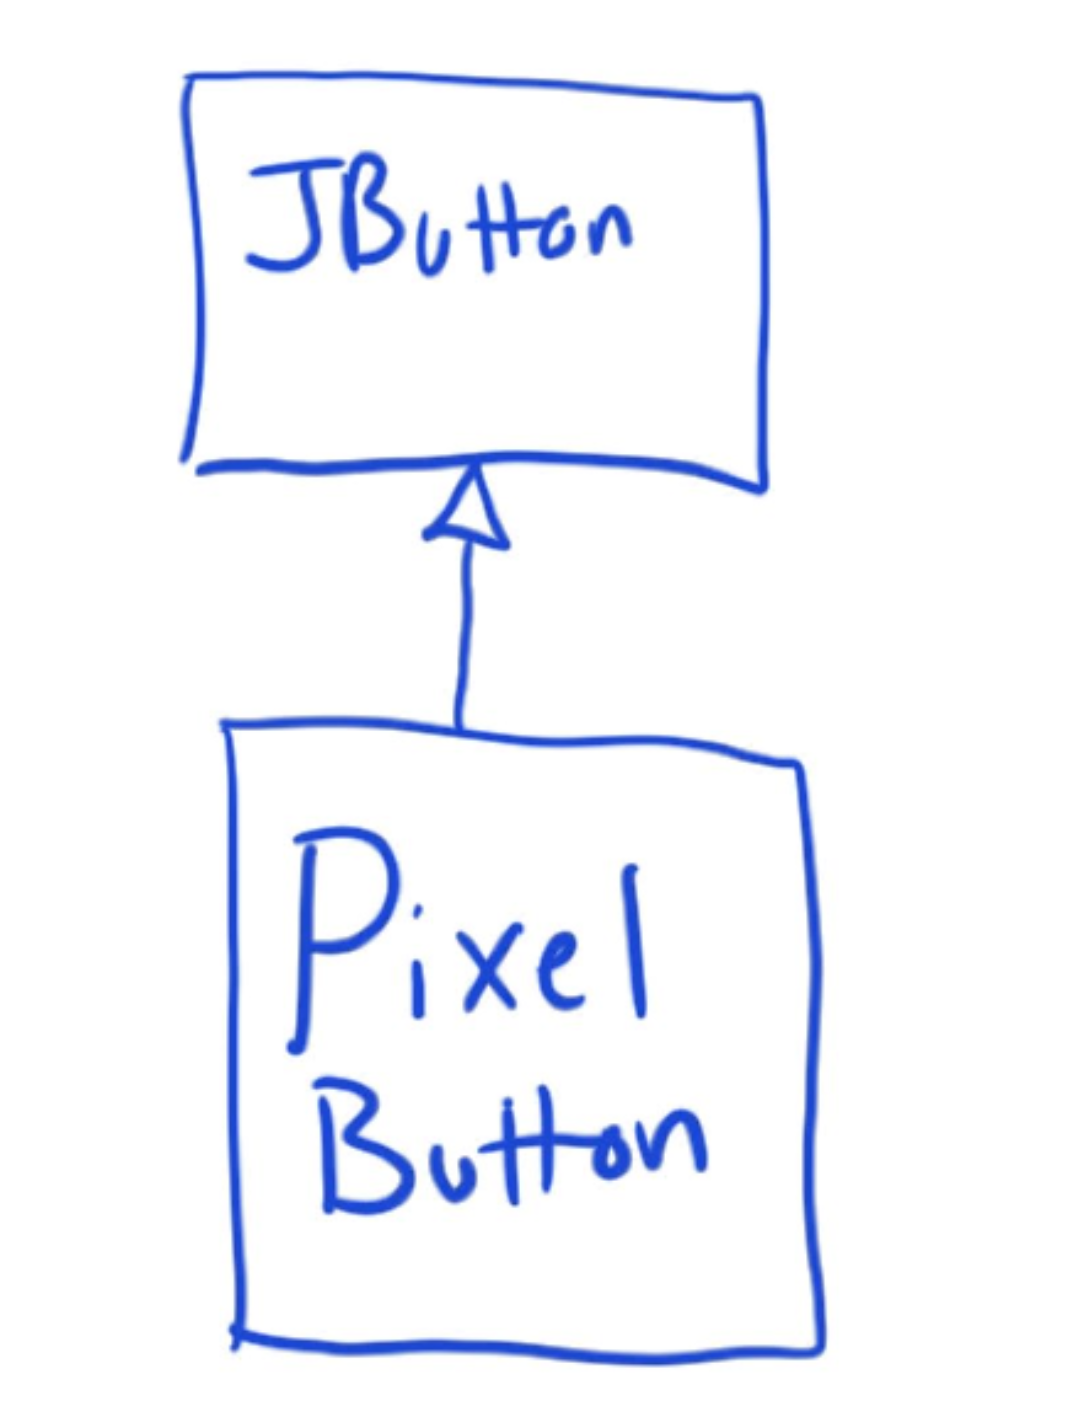 JButton
Pixel
Button